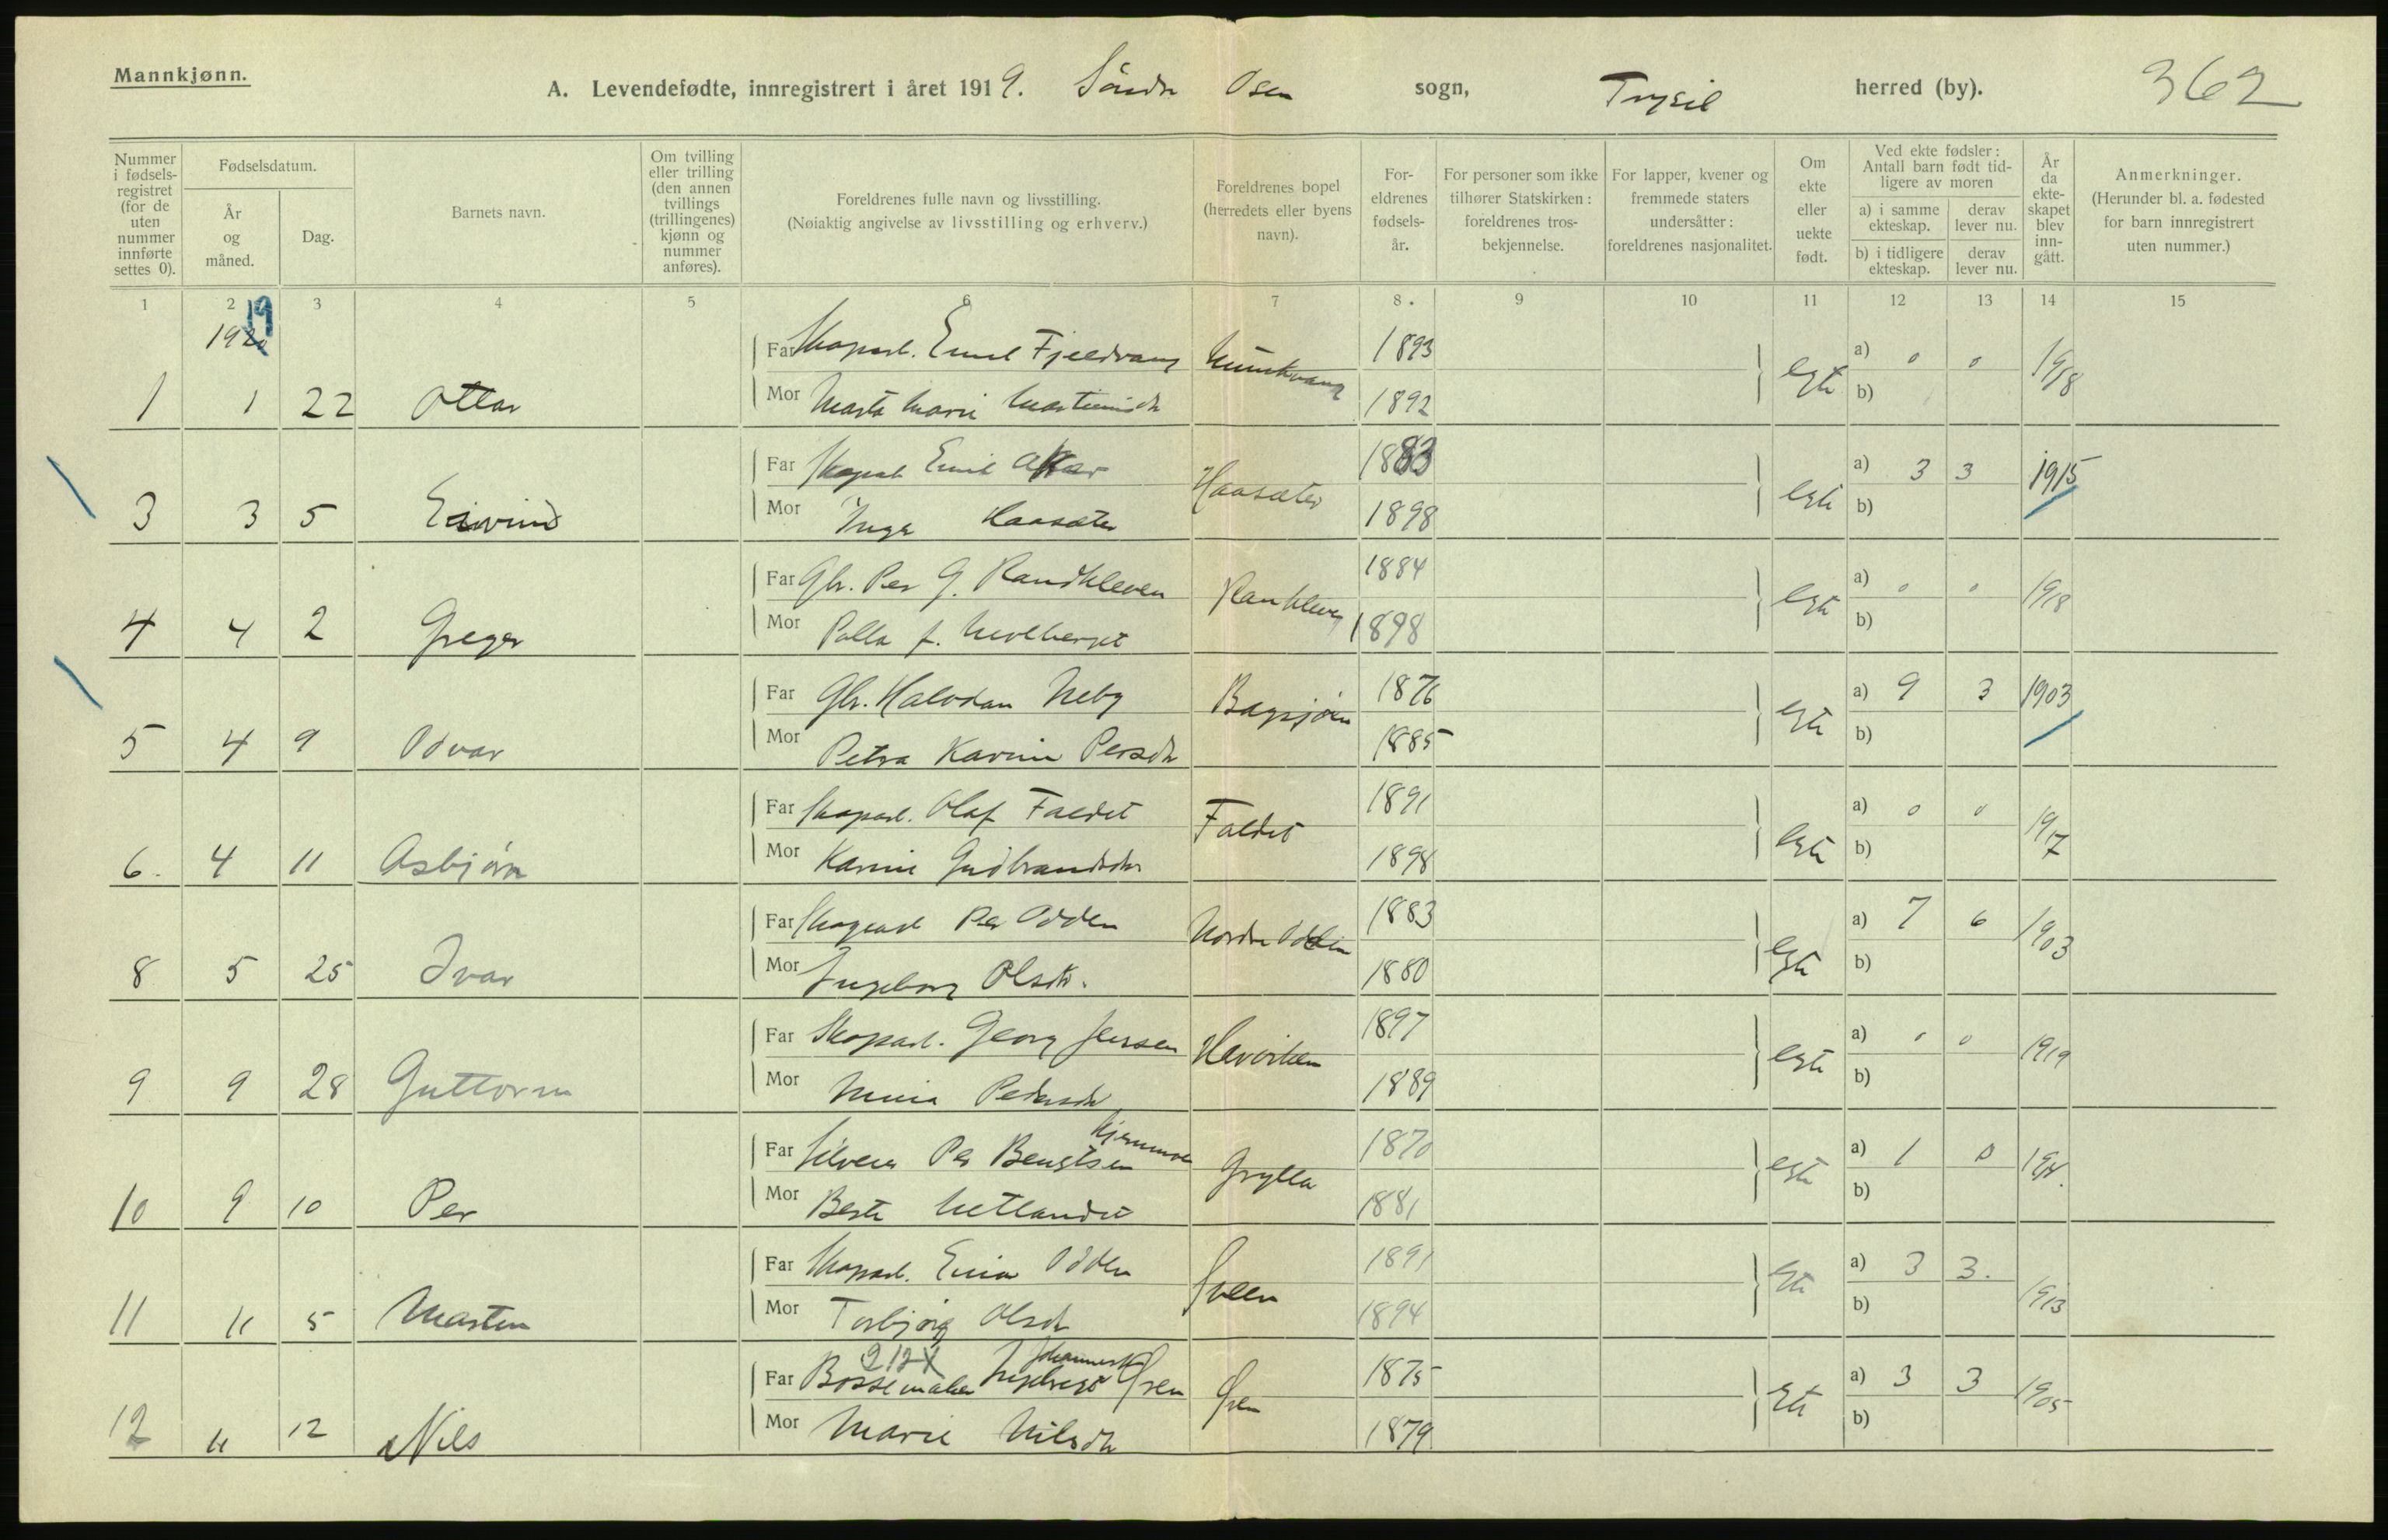 Mannkjønn.
A. Levendefødte, innregistrert i året 1919. Søndre Osen sogn, Trysil herred (by). 362
Nummer i fødsels-registret (for de uten nummer innførte settes 0).
Fødselsdatum.
År og måned.
Dag.
Barnets navn.
Om tvilling eller trilling (den annen tvillings (trillingenes) kjønn og nummer anføres).
Foreldrenes fulle navn og livsstilling.
(Nøiaktig angivelse av livsstilling og erhverv.)
Foreldrenes bopel (herredets eller byens navn).
For-eldrenes fødsels-år.
For personer som ikke tilhører Statskirken: foreldrenes tros-bekjennelse.
For lapper, kvener og fremmede staters undersåtter: foreldrenes nasjonalitet.
Om ekte eller uekte født.
Ved ekte fødsler: Antall barn født tid-ligere av moren
a) i samme ekteskap.
derav lever nu.
b) i tidligere ekteskap.
derav lever nu.
År da ekte-skapet blev inn-gått.
Anmerkninger.
(Herunder bl. a. fødested for barn innregistrert uten nummer.)
1 2 3 4 5 6 7 8. 9 10 11 12 13 14 15
19
Far Skogarb. Emil Fjeldvang 1893
1 1 22 Ottar egte a) 0 0 1918
Mor Marta Marie 1892 b)
Far Skogarb Emil Aker 1883
3 3 5 Eivind Haasæter egte a) 3 3 1915
Mor Inga Haasæter 1898 b)
Far Gbr. Per G. Randkleven 1884
4 4 2 Greger egte a) 0 0 1918
Mor Palla f. 1898 b)
Far Gbr. Halvdan Neby 1876
5 4 9 Odvar Bagsjøen egte a) 9 3 1903
Mor Petra Karine Persdtr 1885 b)
Far Skogarb. Olaf Faldet 1891
6. 4 11 Asbjørn Faldet egte a) 0 0 1917
Mor Karine Gudbrandsdtr 1898 b)
Far Skogarb Per Odden 1883
8 5 25 Ivar Nordre Odden egte a) 7 6 1903
Mor Ingeborg Olsdtr. 1880 b)
Far Skogarb. Georg Jensen 1897
9 9 28 Guttorm egte a) 0 0 1919
Mor Pedersdtr 1889 b)
Far Per Bengtsen 1870
10 9 10 Per Grylla egte a) 1 0
Mor Berte 1881 b)
Far Skogarb. Einar Odden 1891
11 11 5 Marten Sveen egte a) 3 3. 1913
Mor Torbjørg Olsdtr 1894 b)
212X
Far Bøssemaker Ingebregt Øren 1875
12 11 12 Nils Øren egte a) 3 3 1905
Mor Marie Nilsdtr 1879 b)